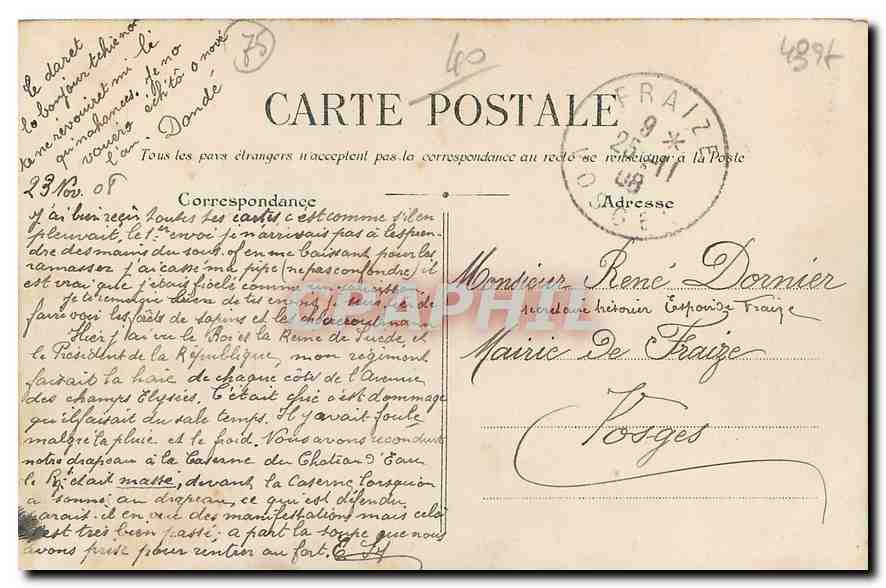 Le daret
lo bonjour tchie no
qu'nahances. Je no
l'an. Dandé
75
40
CARTE POSTALE
FRAIZE
9 *
25 -11
08
VOSGES
Tous les pays étrangers n'acceptent pas la correspondance au recto se renseigner à la Poste
23 Nov. 08
Correspondance
Adresse
J'ai bien reçu toutes tes cartes, c'est comme s'il en
pleuvait, le 1er envoi je n'arrivais pas à les pren-
dre des mains du sous-of en me baissant pour les
ramasser j'ai cassé ma pipe (ne pas confondre) il
est vrai que j'étais ficelé comme un
je te remercie de tes envois
faire voir les forêts de sapins et les
Hier j'ai vu le Roi et la Reine de Suède, et
et le Président de la République, mon régiment
faisait la haie de chaque côté de l'Avenue
des champs Elysées. C'était chic c'est dommage
qu'il faisait du sale temps. Il y avait foule
malgré la pluie et le froid. Nous avons reconduit
notre drapeau à la Caserne du Château d'Eau
le Rgt était massé, devant la Caserne lorsqu'on
a sonné au drapeau, ce qui est défendu
parait-il en cas des manifestations mais cela
s'est très bien passé, a part la soupe que nous
avons prise pour rentrer au fort.
Monsieur René Dornier
secrétaire trésorier Fraize
Mairie de Fraize
Vosges
CPAPHIL